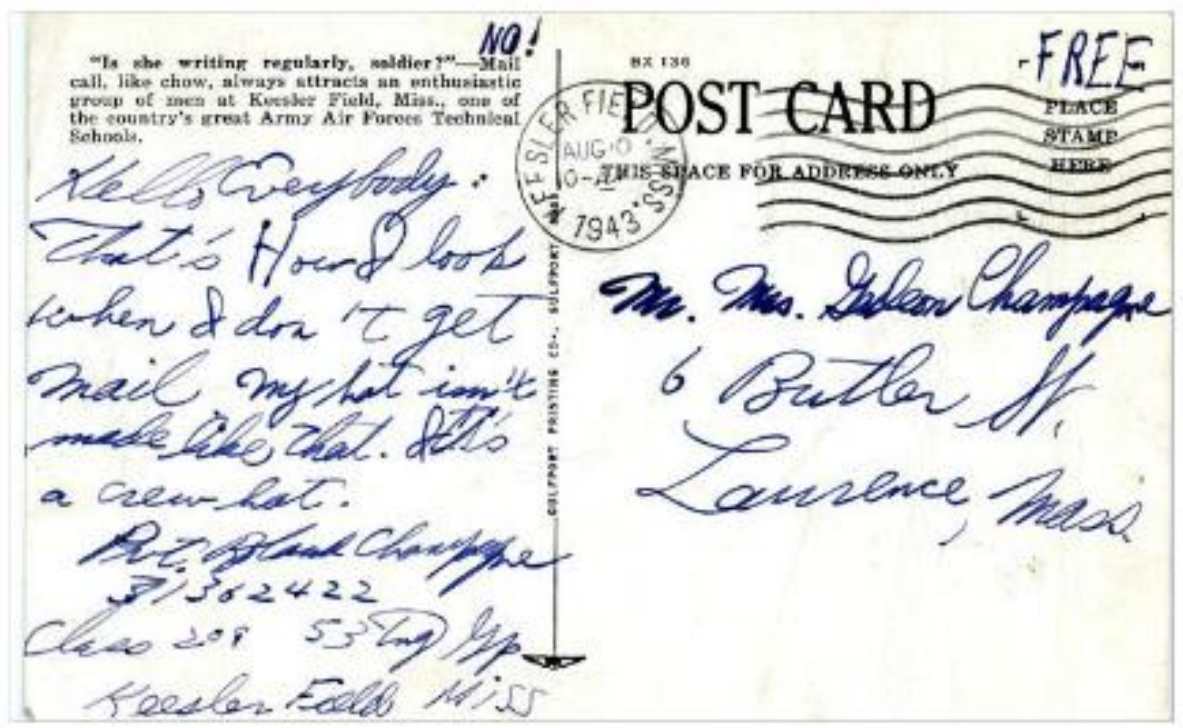 NO!
"Is she writing regularly, soldier?"—Mail
call, like chow, always attracts an enthusiastic
group of men at Keesler Field, Miss., one of
the country's great Army Air Forces Technical
Schools.
Hello Everybody:
That's How I look
when I don't get
mail my hat isn't
made like that. It's
a crew hat.
Pvt. Champagne
31362422
Class 209 53 Tng Gp
Keesler Field Miss
GULFPORT PRINTING CO., GULFPORT, MISS.
KEESLER FIELD MISS.
AUG
1943
BX 136
POST CARD
THIS SPACE FOR ADDRESS ONLY
FREE
PLACE
STAMP
HERE
Mr. Mrs. Gideon Champagne
6 Butler St.
Lawrence, Mass.